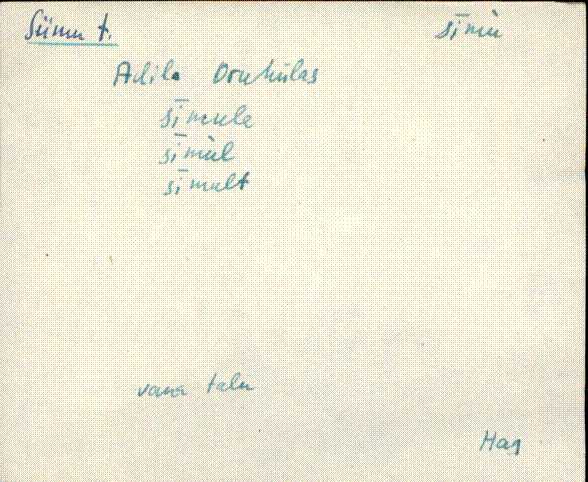 Sümu t. sīmù
Adila Oruküläs
sīmule
sīmùl
sīmult
vana talu
Hag